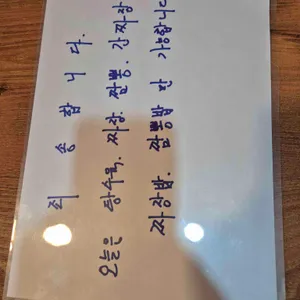 죄송합니다.
오늘은 탕수육. 짜장. 짬뽕. 간짜장
짜장밥. 짬뽕밥만 가능합니다